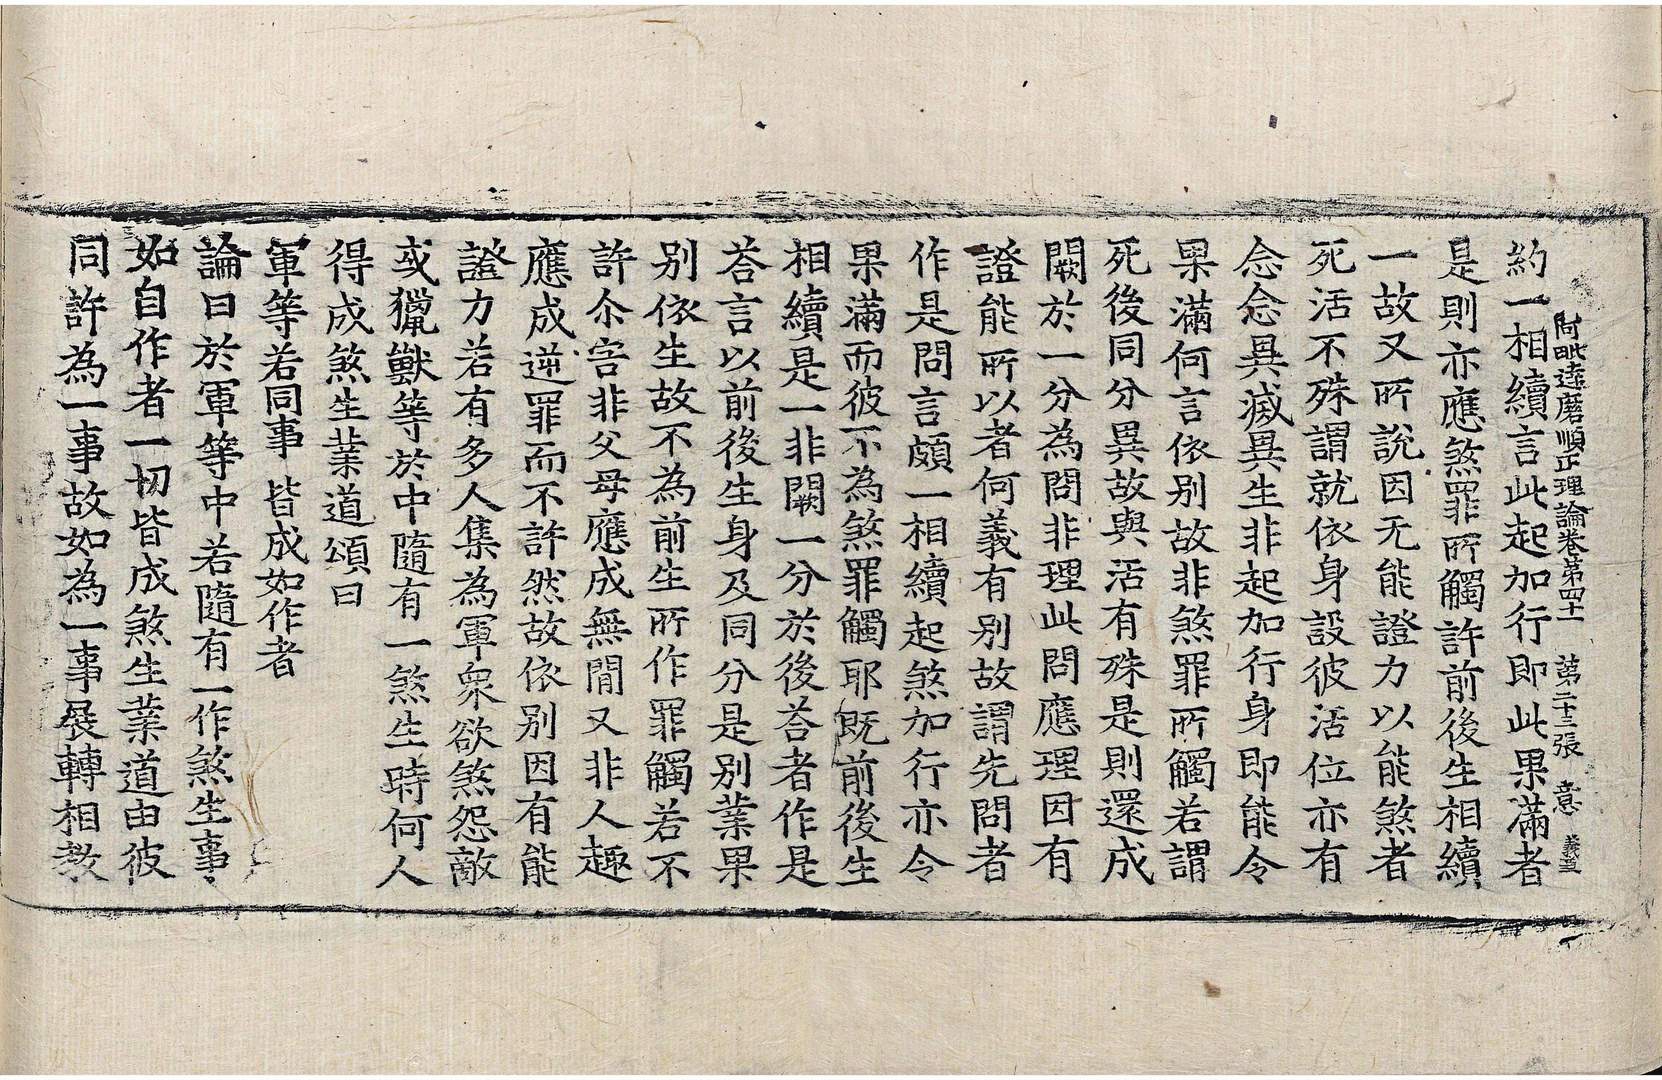 阿毗達磨順正理論卷第四十二　第二十三張　意　義道
約一相續言此起加行即此果滿者
是則亦應煞罪所觸許前後生相續
一故又所說因无能證力以能煞者
死活不殊謂就依身設彼活位亦有
念念異滅異生非起加行身即能令
果滿何言依別故非煞罪所觸若謂
死後同分異故與活有殊是則還成
闕於一分為問非理此問應理因有
證能所以者何義有別故謂先問者
作是問言頗一相續起煞加行亦令
果滿而彼不為煞罪觸耶既前後生
相續是一非闕一分於後荅者作是
荅言以前後生身及同分是別業果
別依生故不為前生所作罪觸若不
許尒害非父母應成無間又非人趣
應成逆罪而不許然故依別因有能
證力若有多人集為軍衆欲煞怨敵
或獵獸等於中隨有一煞生時何人
得成煞生業道頌曰
軍等若同事　皆成如作者
論曰於軍等中若隨有一作煞生事
如自作者一切皆成煞生業道由彼
同許為一事故如為一事展轉相教